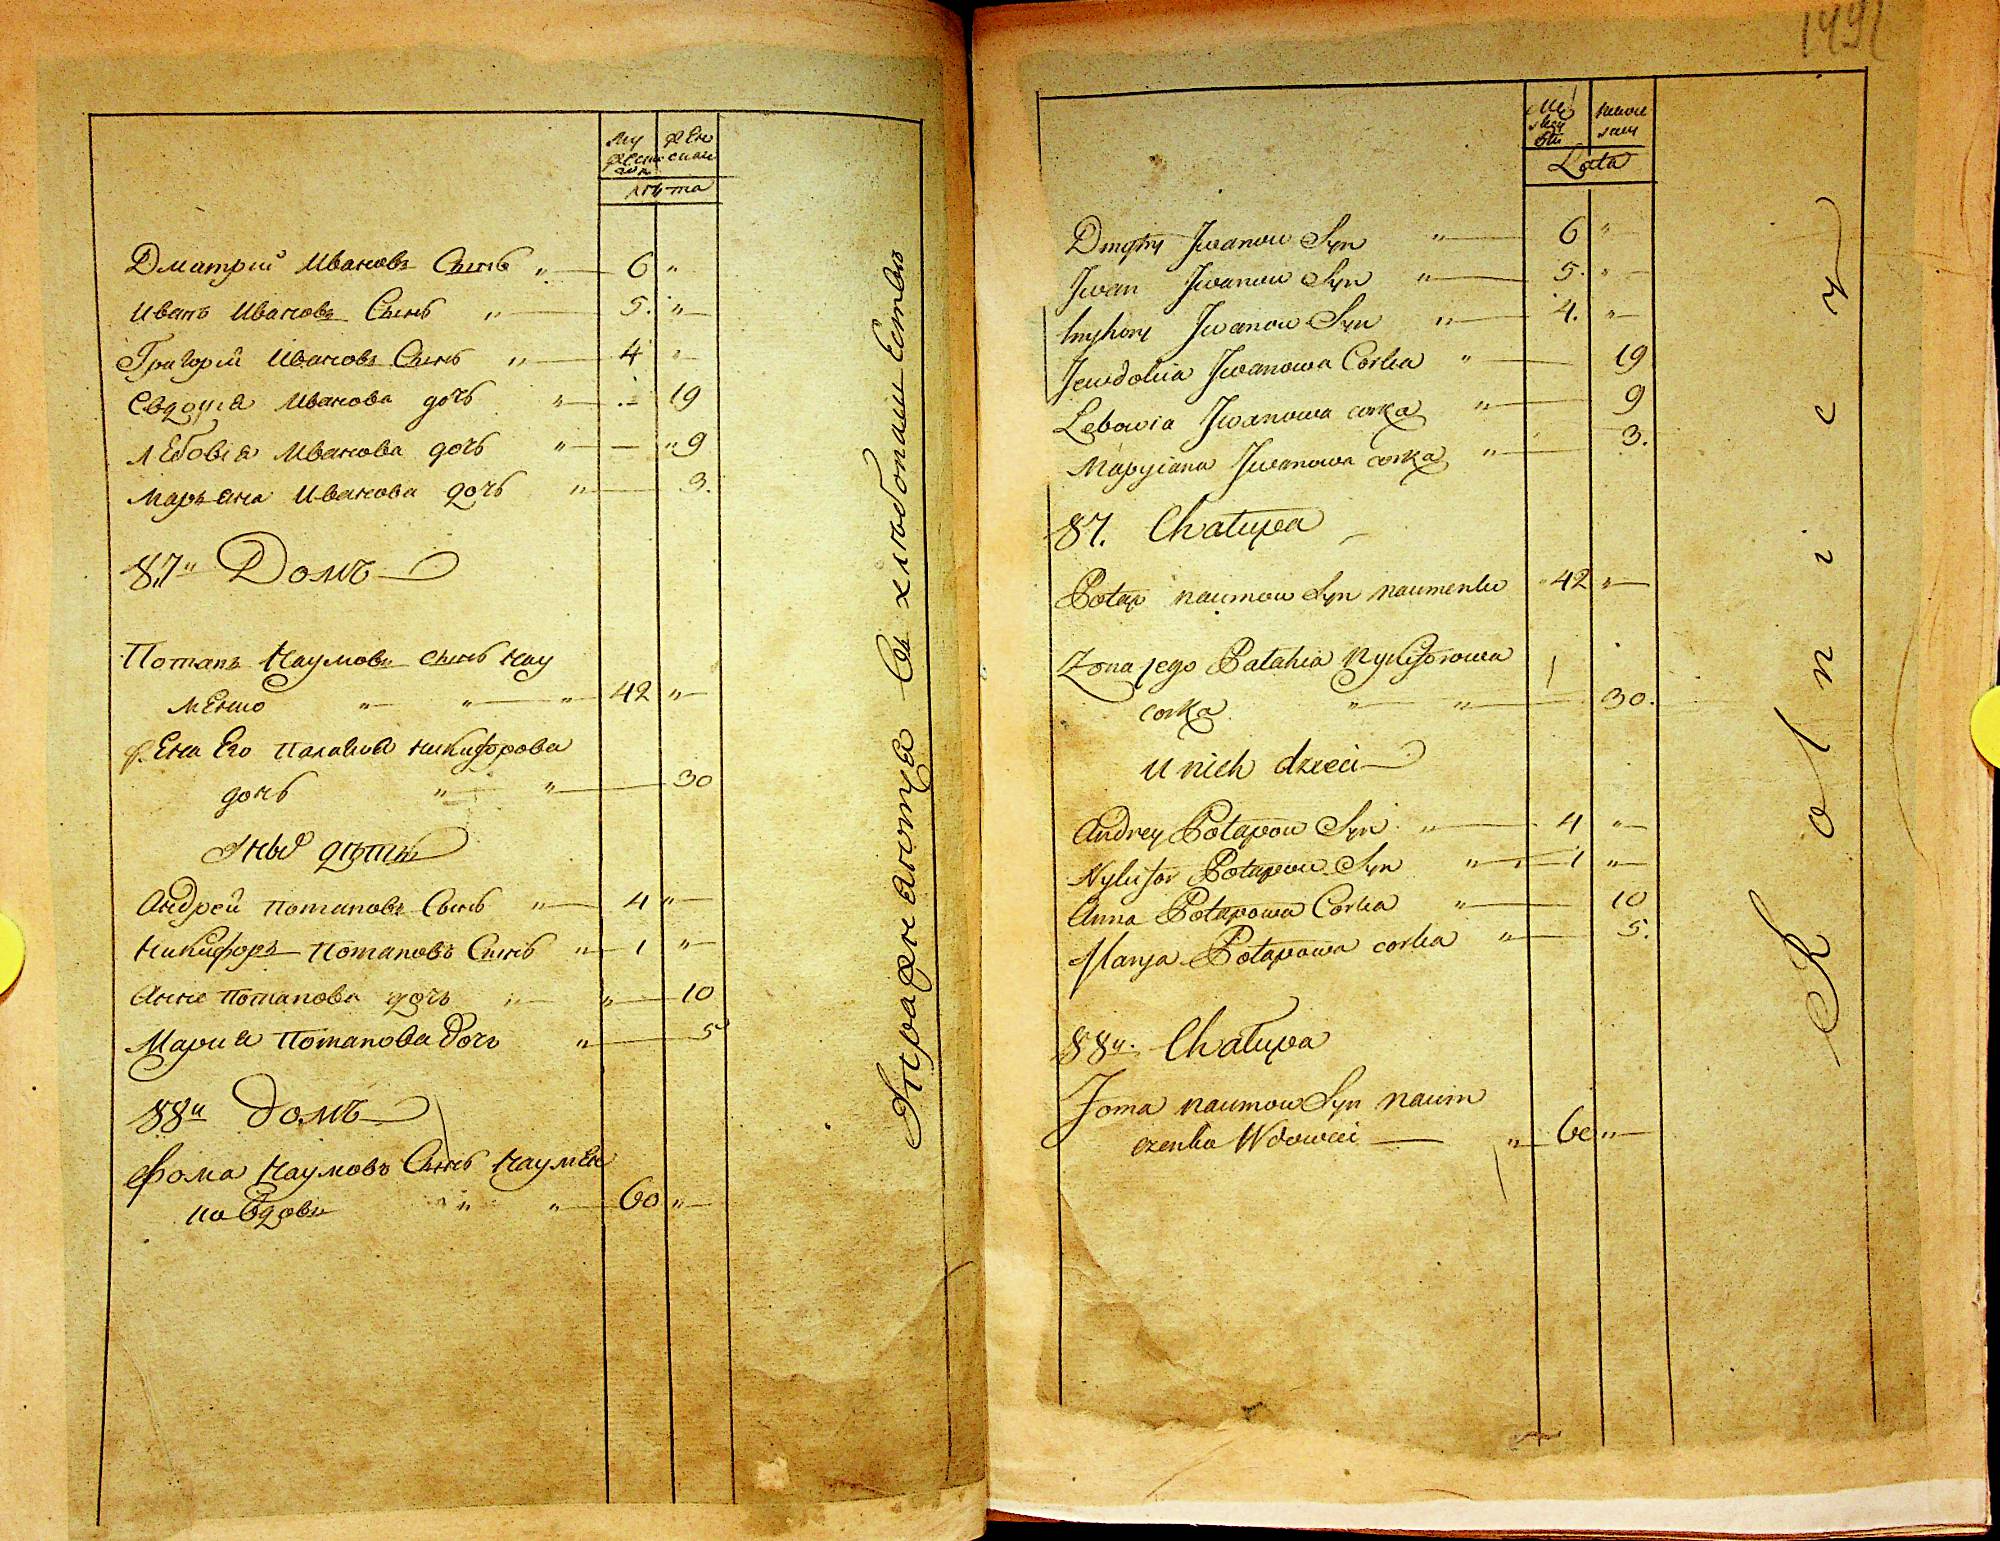 Му
жеска
жен
скаи
лѣта
Дматрий Ивановъ Сынъ " 6 "
Иванъ Ивановъ Сынъ " 5. "
Григорий Ивановъ Сынъ " 4 "
Евдокия Иванова дочь " 19
Лебовия Иванова дочь " " 9
Марьяна Иванова дочь " 3.
87" Домъ
Потапъ Наумовъ сынъ Нау
менко " " " 42 "
жена Его Палагия Никифорова
дочь " " 30
У ныхъ дѣты
Андрей Потаповъ Сынъ " 4 "
Никифоръ Потаповъ Сынъ " 1 "
Анна Потапова дочь " " 10
Мария Потапова Дочь " 5
88" Домъ
Фома Наумовъ Сынъ Наумен
ко Вдовы " " 60 "
Упражняютца въ хлѣбопашествѣ
149
Lata
Dmytry Jwanow Syn " 6 "
Jwan Jwanow Syn " 5. "
Hryhory Jwanow Syn " 4. "
Jewdokia Jwanowa Corka " 19
Lebowia Jwanowa corka " 9
Maryiana Jwanowa corka " 3.
87. Chałupa
Potap naumow Syn naumenko 42 "
Zona jego Palahia Nykiforowa
corka " " 30.
U nich dzieci
Andrey Potapow Syn " 4 "
Nykifor Potapow Syn " 1 "
Anna Potapowa Corka " 10
Marya Potapowa corka " 5.
88". Chałupa
Foma naumow Syn naum
czenko Wdowiec " 60 "
Rolnicy